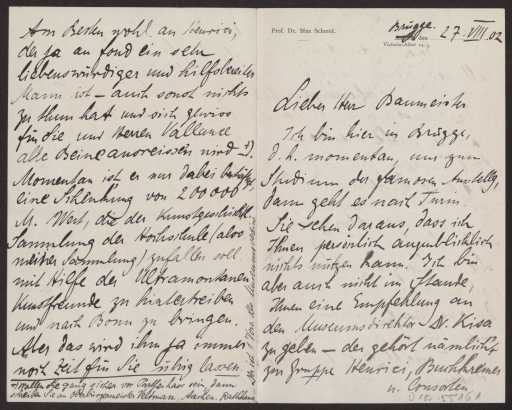 Prof. Dr. Max Schmid.
Brügge.
den
27. VIII 02
Lieber Herr Baumeister
Ich bin hier in Brügge,
d. h. momentan, um zum
Studium der famosen Ausstellg,
dann geht es nach Turin.
Sie sehen daraus, dass ich
Ihnen persönlich augenblicklich
nichts nützen kann. Ich bin
aber auch nicht im Stande,
Ihnen eine Empfehlung an
den Museumsdirektor Dr. Kisa
zu geben – der gehört nämlich
zur Gruppe Henrici, Buchkremer
u. Consorten.
Am Besten wohl an Henrici,
der ja au fond ein sehr
liebenswürdiger und hilfsbereiter
Mann ist – auch sonst nichts
zu thun hat und sich gewiss
für Sie und Herren Vallance
alle Beine ausreissen wird
Momentan ist er nur dabei
eine Schenkung von 200000
M. Wert, die der Kunstgeschichtl.
Sammlung der Hochschule (also
meiner Sammlung) zufallen soll
mit Hilfe der Ultramontanen
Kunstfreunde zu hintertreiben
und nach Bonn zu bringen.
Aber das wird ihm ja immer
noch Zeit für Sie übrig lassen
Wollen Sie ganz sicher vor
sein, dann
schreiben Sie an Oberbürgermeister Veltman. Aachen. Rathhaus